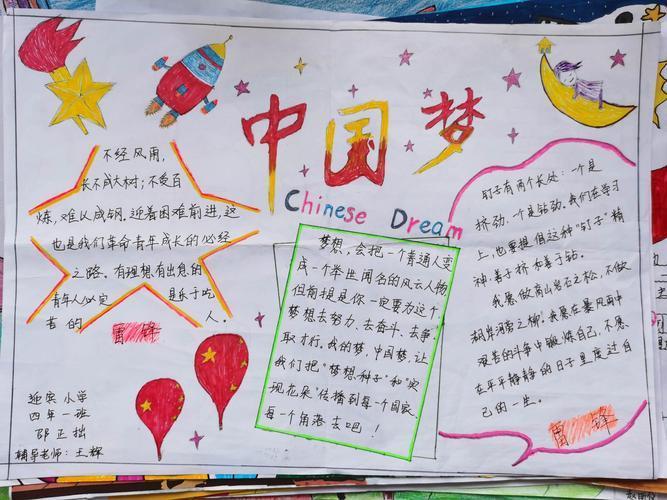 中国梦
Chinese Dream
不经风雨,
长不成大树;不受百
炼,难以成钢。迎着困难前进,这
也是我们革命青年成长的必经
之路。有理想有出息的
青年人必定 是乐于吃
苦的 人。
雷锋
迎宾小学
四年一班
邵正拙
辅导老师:王辉
梦想,会把一个普通人变
成一个举世闻名的风云人物,
但前提是你一定要为这个
梦想去努力、去奋斗、去争
取才行。我的梦,中国梦,让
我们把“梦想种子”和“实
现花朵”传播到每一个国家,
每一个角落去吧!
钉子有两个长处:一个是
挤劲,一个是钻劲。我们在学习
上,也要提倡这种“钉子”精
神,善于挤和善于钻。
我愿做高山岩石之松,不做
湖岸河旁之柳。我愿在暴风雨中
艰苦的斗争中锻炼自己,不愿
在平平静静的日子里度过自
己的一生。
雷锋